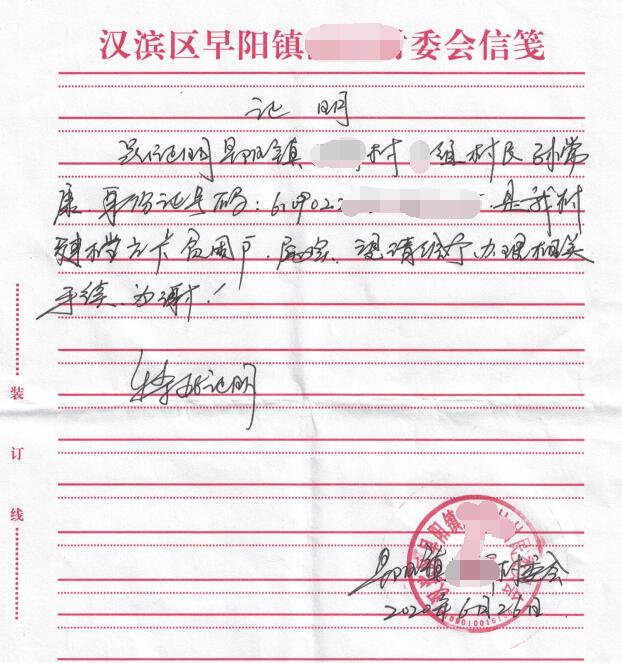 汉滨区早阳镇 委会信笺
证 明
兹证明早阳镇 村 组村民孙常
康、身份证号码:612402 是我村
建档立卡贫困户,属实、望请给予办理相关
手续、为谢!
特此证明
装
订
线
早阳镇 村委会
2020年6月26日